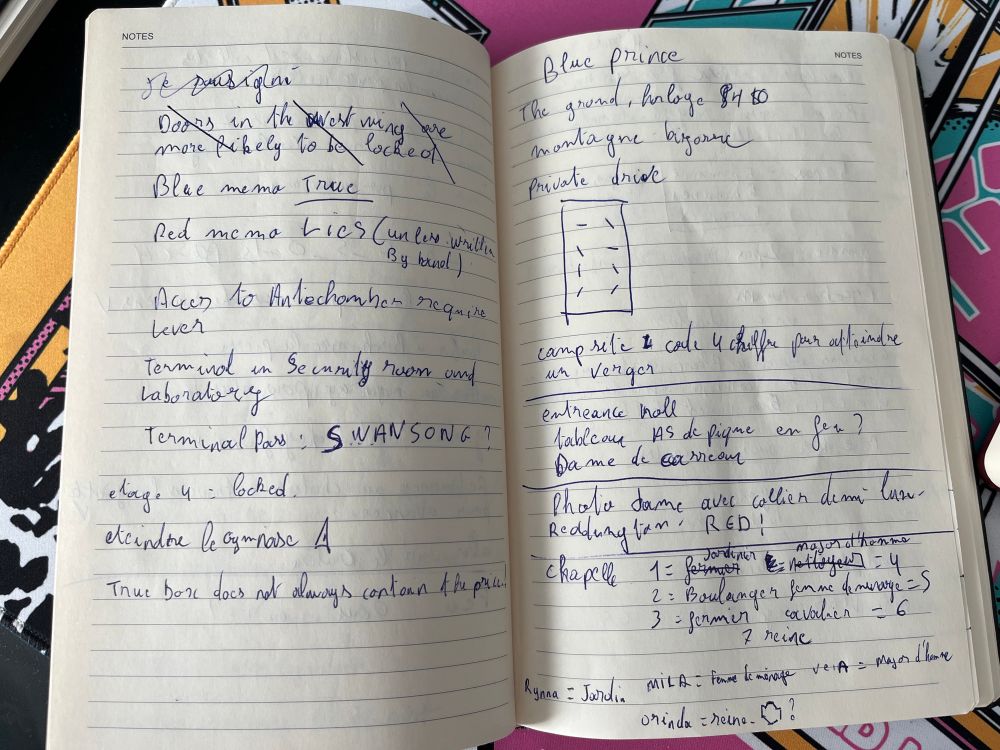 NOTES
Doors in the west wing are
more likely to be locked
Blue memo True
Red memo Lies (unless written
By hand)
Acces to Antechamber require
Lever
Terminal in Security room and
Laboratorey
Terminal Pass : SWANSONG ?
etage 4 = locked.
eteindre le gymnase
True box does not always contain the price!
NOTES
Blue prince
The ground, horloge
montagne bizarre
private drive
camp site code 4 chiffre pour atteindre
un verger
entreance hall
tableau AS de pique en feu ?
Dame de carreau
Photo dame avec collier demi lune.
Reddington. RED!
chapelle 1 = fermier Jardinier nettoyeur major d'homme = 4
2 = Boulanger femme de menage = 5
3 = fermier cavalier = 6
7 reine
Rynna = Jardin MILA = femme de ménage VeiA = major d'homme
Orinda = reine. ?